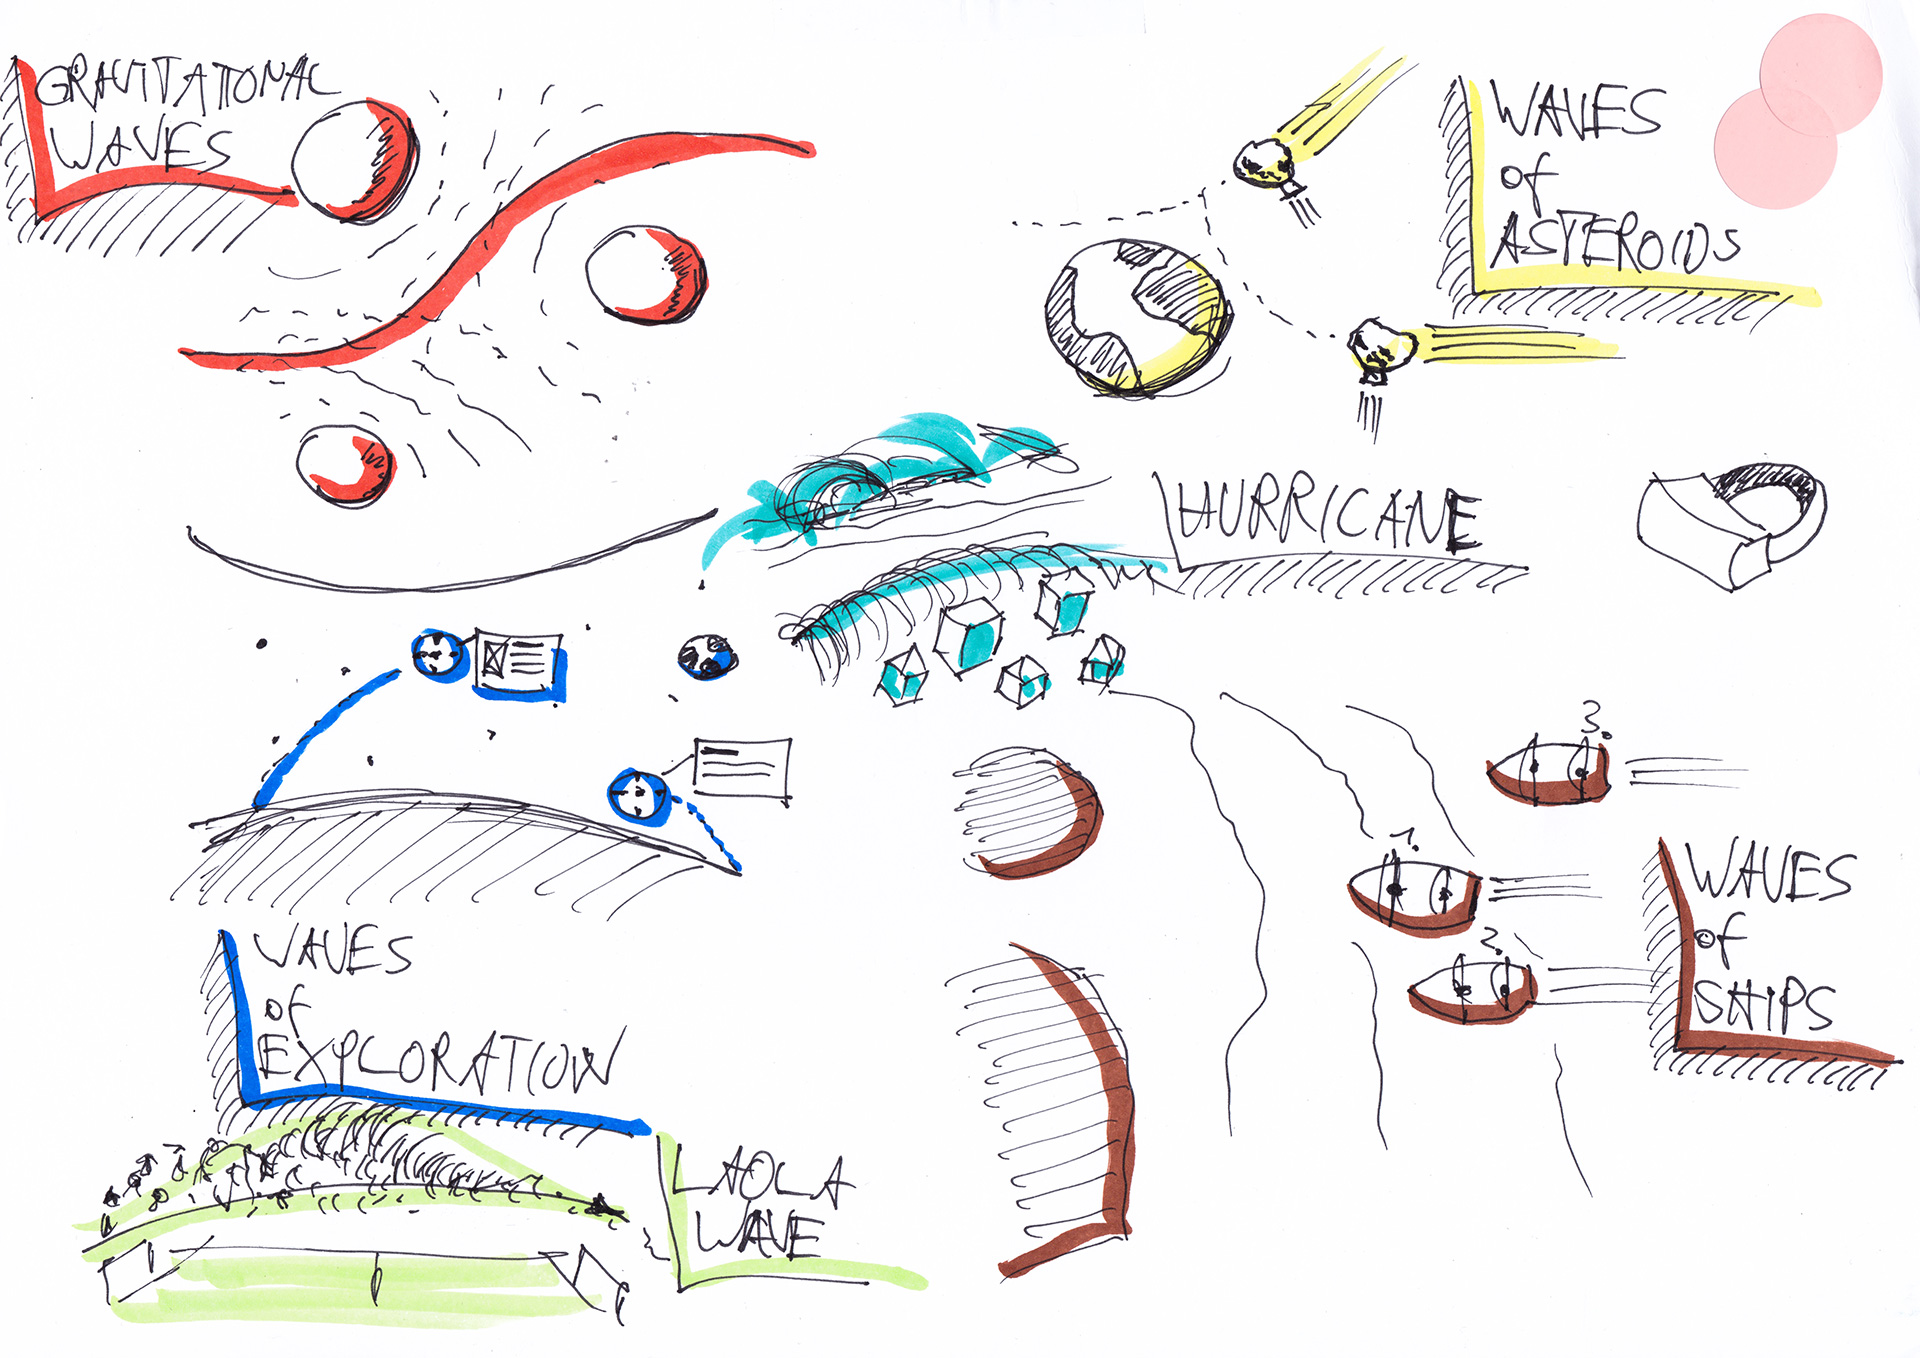 GRAVITATIONAL
WAVES
WAVES
of
ASTEROIDS
HURRICANE
3.
1.
2.
WAVES
of
SHIPS
WAVES
of
EXPLORATION
LAOLA
WAVE